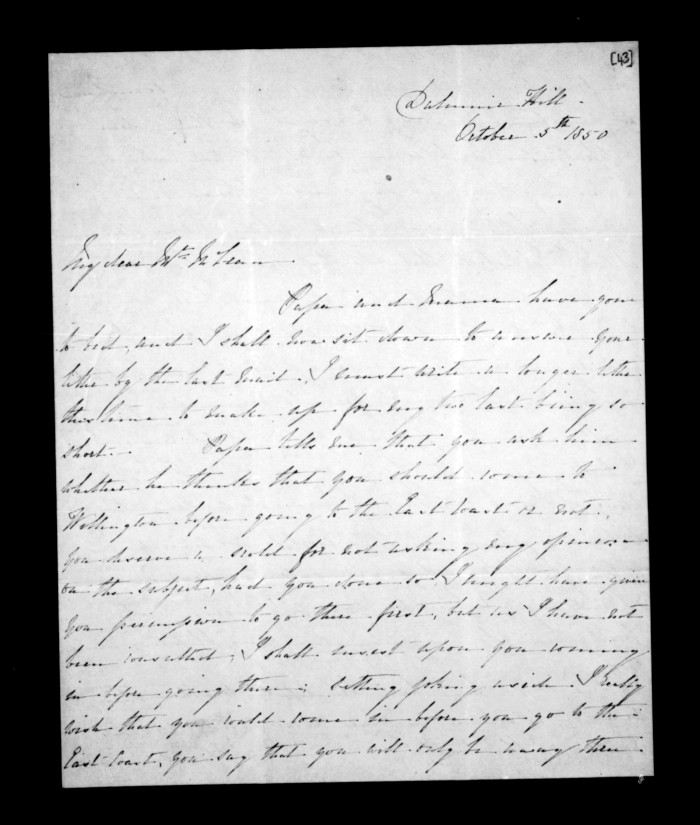 [43]
Dalmuir Hill.
October 5th 1850
My dear Mr McLean
Papa and Mama have gone
to bed, and I shall now sit down to answer your
letter by the last mail. I must write a longer letter
this time to make up for my two last being so
short. — Papa tells me that you ask him
whether he thinks that you should come to
Wellington before going to the East Coast or not,
you deserve a scold for not asking my opinion
on the subject, had you done so I might have given
you permission to go there first, but as I have not
been consulted, I shall insist upon you coming
in before going there; setting joking aside I really
wish that you could come in before you go to the
East Coast, you say that you will only be away three